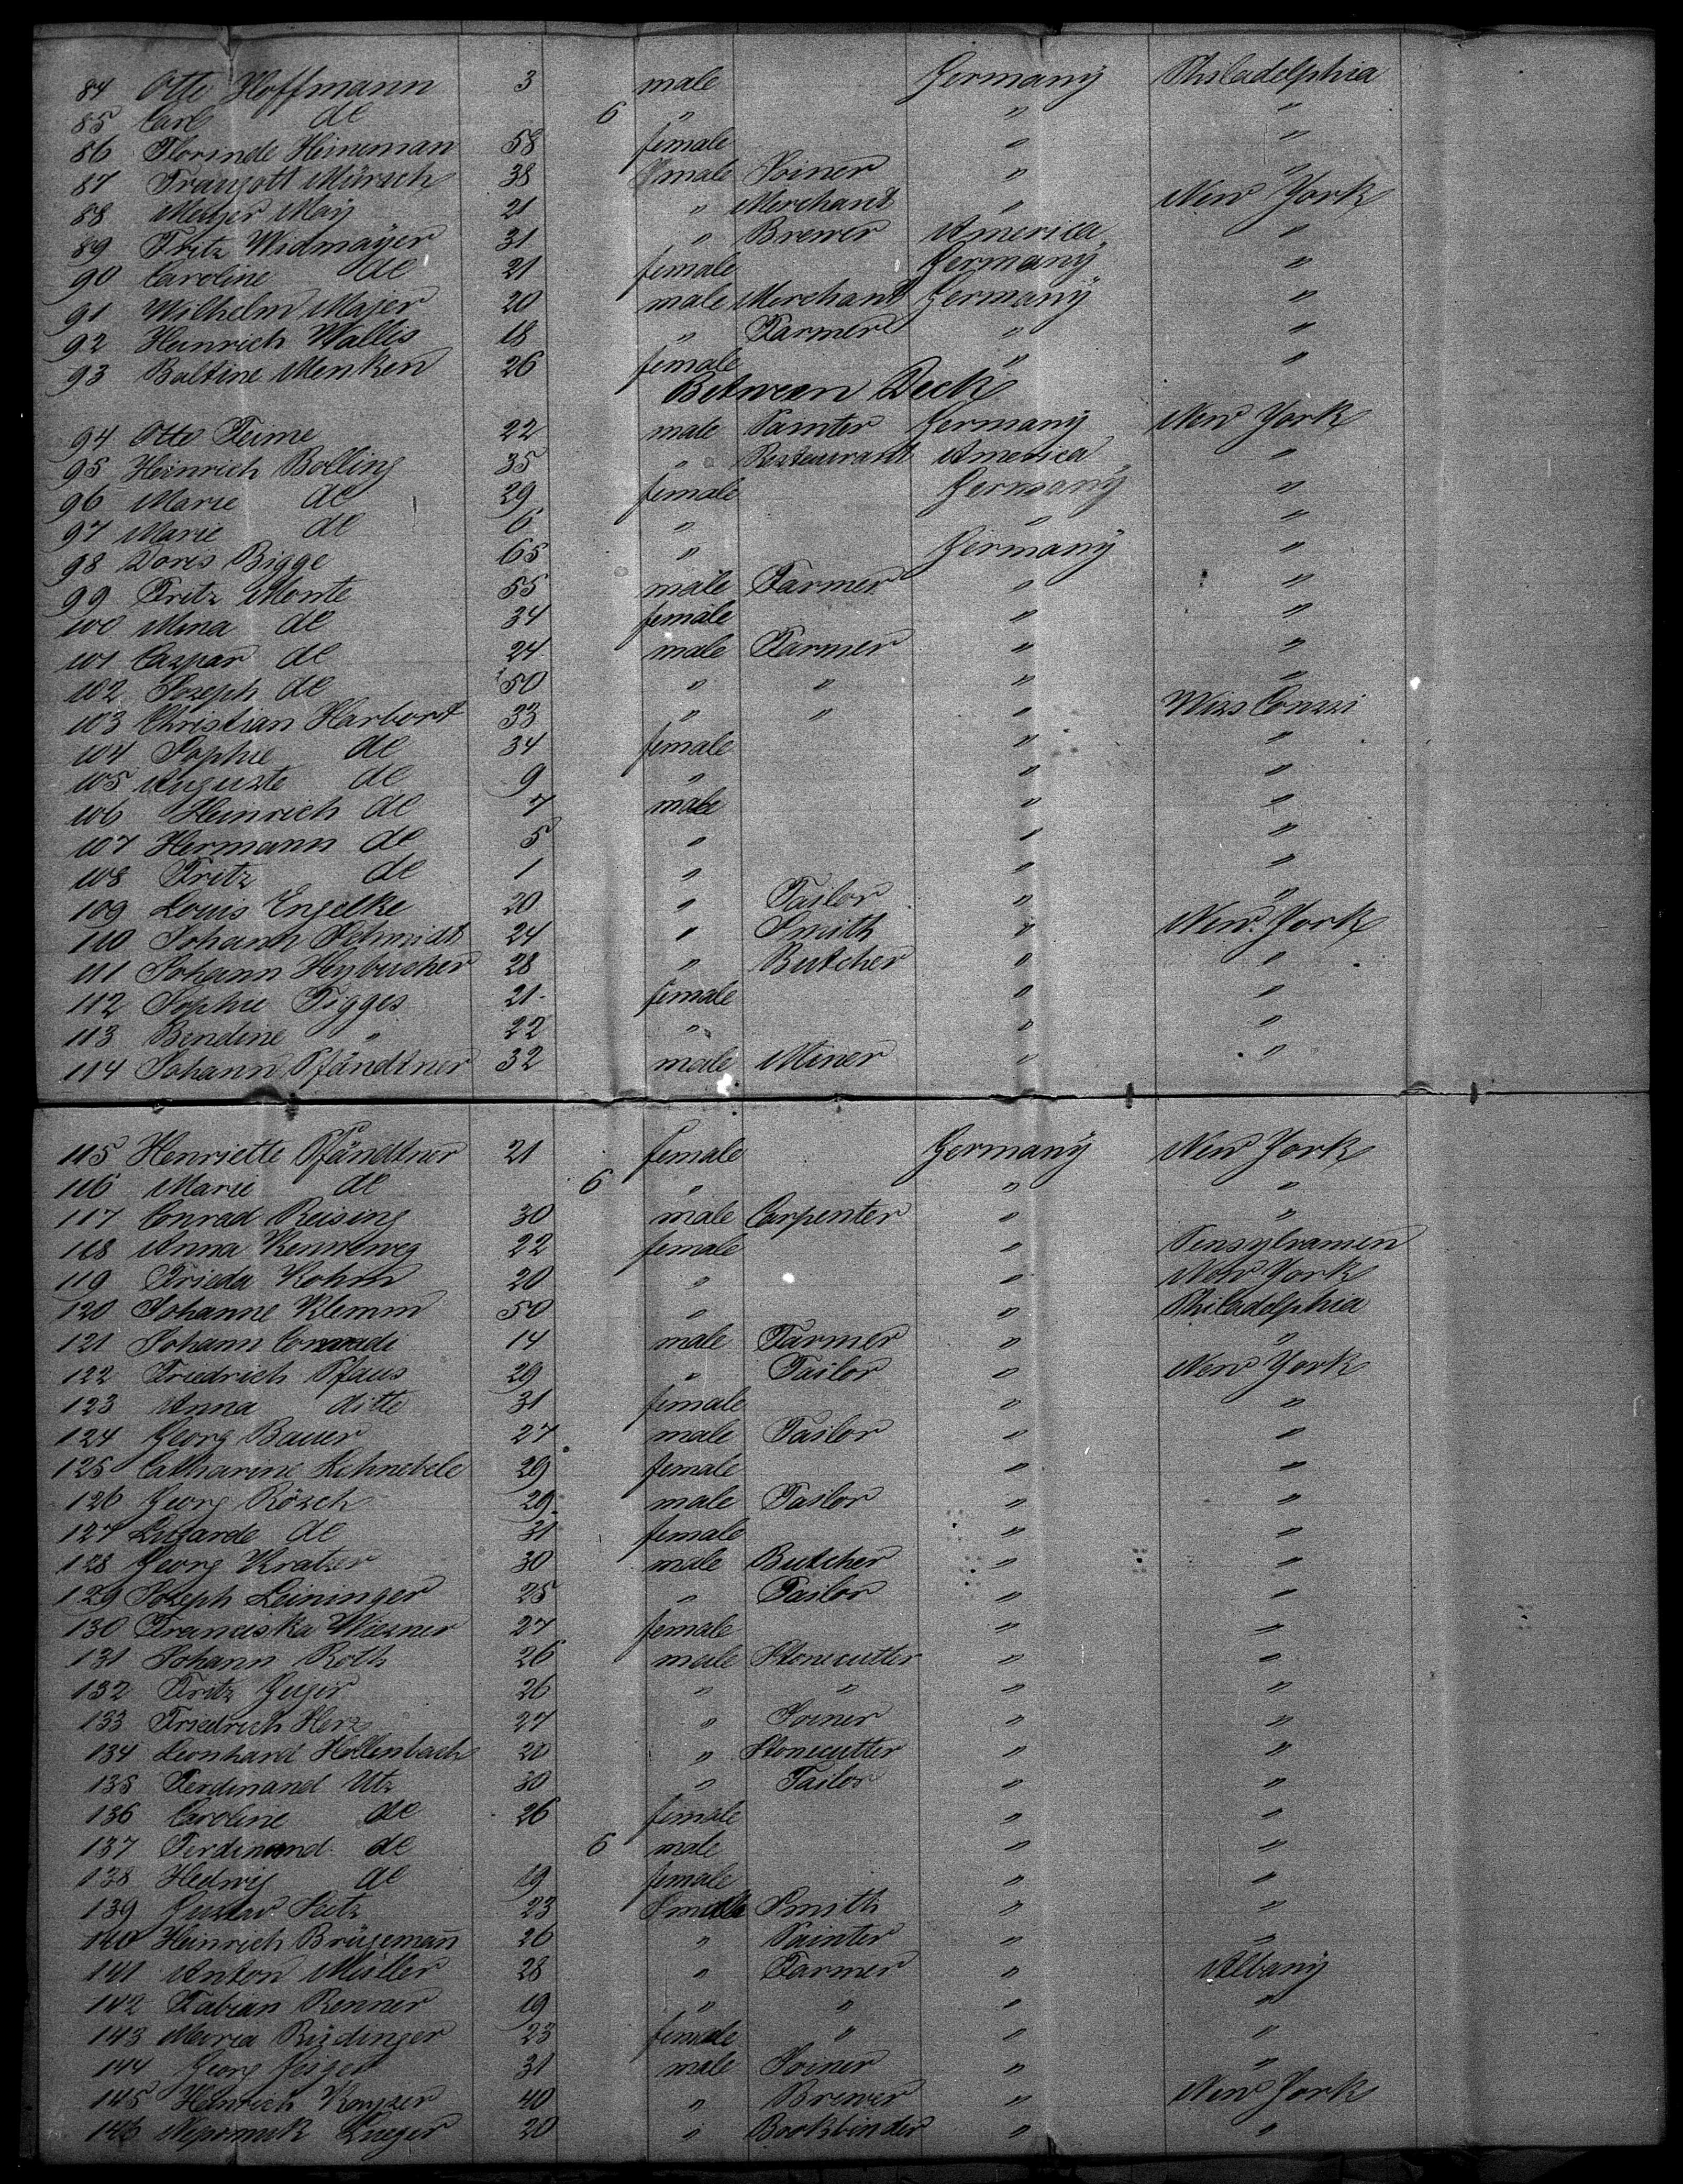 84 Otto Hoffmann 3 male Germany Philadelphia
85 Carl do 6 " " "
86 Florinde Heineman 58 female " "
87 Traugott Mürsch 38 male Joiner " "
88 Meyer May 21 " Merchant " New York
89 Fritz Widmayer 31 " Brewer America "
90 Caroline do 21 female Germany "
91 Wilhelm Majer 20 male Merchant Germany "
92 Heinrich Wallis 18 " Farmer " "
93 Baltine Menken 26 female " "
Between Deck
94 Otto Feime 22 male Painter Germany New York
95 Heinrich Bolling 35 " Restaurant America "
96 Marie do 29 female Germany "
97 Marie do 6 " " "
98 Doris Bigge 65 " Germany "
99 Fritz Monte 55 male Farmer " "
100 Mina do 34 female " "
101 Caspar do 24 male Farmer " "
102 Joseph do 50 " " " "
103 Christian Harbort 33 " " " Wiss Conssi
104 Sophie do 34 female " "
105 Auguste do 9 " " "
106 Heinrich do 7 male " "
107 Hermann do 5 " " "
108 Fritz do 1 " " "
109 Louis Engelke 20 " Tailor " "
110 Johann Schmidt 24 " Smith " New York
111 Johann Henbucher 28 " Butcher " "
112 Sophie Tigges 21 female " "
113 Bendine " 22 " " "
114 Johann Pfändtner 32 male Miner " "
115 Henriette Pfändtner 21 female Germany New York
116 Marie do 6 " " "
117 Conrad Reising 30 male Carpenter " "
118 Anna Kenneweg 22 female " Pensylvanien
119 Frieda Kohm 20 " " New York
120 Johanne Klemm 50 " " Philadelphia
121 Johann Conradi 14 male Farmer " "
122 Friedrich Pfaus 29 " Tailor " New York
123 Anna ditto 31 female " "
124 Georg Bauer 27 male Tailor " "
125 Catharine Schnebele 29 female " "
126 Georg Rösch 29 male Tailor " "
127 Lugarde do 31 female " "
128 Georg Kratzer 30 male Butcher " "
129 Joseph Leininger 25 " Tailor " "
130 Franciska Wiesner 27 female " "
131 Johann Roth 26 male Stonecutter " "
132 Fritz Geyer 26 " " " "
133 Friedrich Herz 27 " Joiner " "
134 Leonhard Hollenbach 20 " Stonecutter " "
135 Ferdinand Utz 30 " Tailor " "
136 Caroline do 26 female " "
137 Ferdinand do 6 male " "
138 Hedwig do 19 female " "
139 Gustav Seitz 23 male Smith " "
140 Heinrich Brügemañ 26 " Painter " "
141 Anton Müller 28 " Farmer " Albany
142 Fabian Renner 19 " " " "
143 Maria Rüdinger 23 female " " "
144 Georg Jerger 31 male Joiner " "
145 Heinrich Konzer 40 " Brewer " New York
146 Nepomuk Lueger 20 " Bookbinder " "